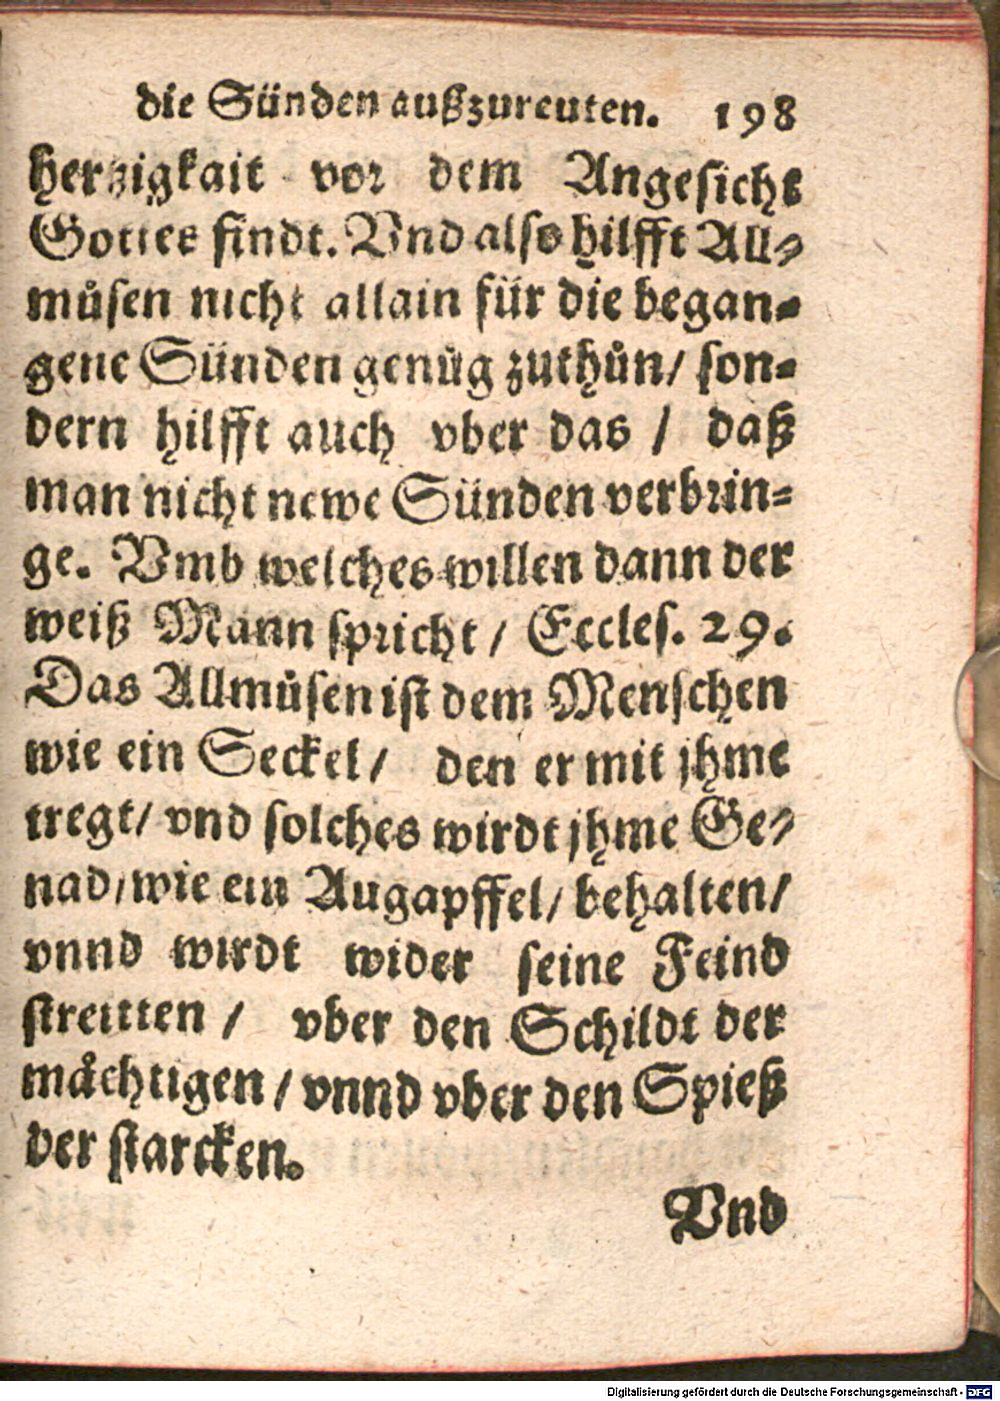 die Sünden außzureuten. 198
hertzigkait vor dem Angesicht
Gottes findt. Vnd also hilfft All⸗
muͦsen nicht allain für die began⸗
gene Sünden genuͦg zuthuͦn/ son⸗
dern hilfft auch vber das / daß
man nicht newe Sünden verbrin⸗
ge. Vmb welches willen dann der
weiß Mann spricht / Eccles. 29.
Das Allmuͦsen ist dem Menschen
wie ein Seckel / den er mit jhme
tregt/ vnd solches wirdt jhme Ge⸗
nad/ wie ein Augapffel/ behalten/
vnnd wirdt wider seine Feind
streitten / vber den Schildt der
maͤchtigen / vnnd vber den Spieß
der starcken.
Vnd
Digitalisierung gefördert durch die Deutsche Forschungsgemeinschaft - DFG